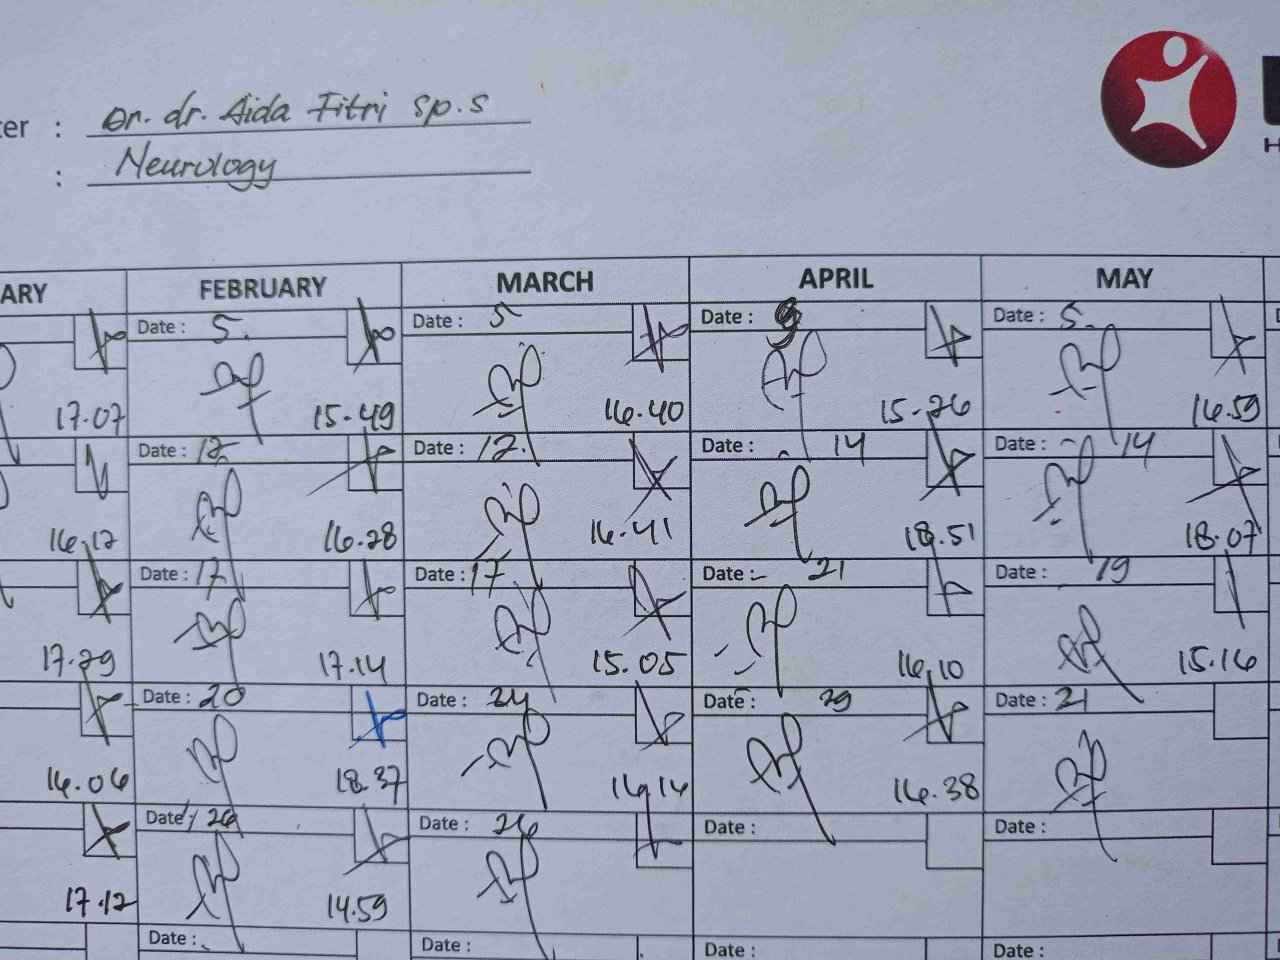 ter : Dr. dr. Aida Fitri Sp.S
: Neurology
H
ARY FEBRUARY MARCH APRIL MAY
Date : 5. Date : 5 Date : Date : 5.
17.07 15.49 16.40 15.26 16.59
Date : 12. Date : 12. Date : 14 Date : 14
16.12 16.28 16.41 18.51 18.07
Date : 17 Date : 17 Date : 21 Date : 19
17.29 17.14 15.05 16.10 15.16
Date : 20 Date : 24 Date : 29 Date : 21
16.06 18.37 16.14 16.38
Date : 26 Date : 26 Date : Date :
17.12 14.59
Date : Date : Date : Date :